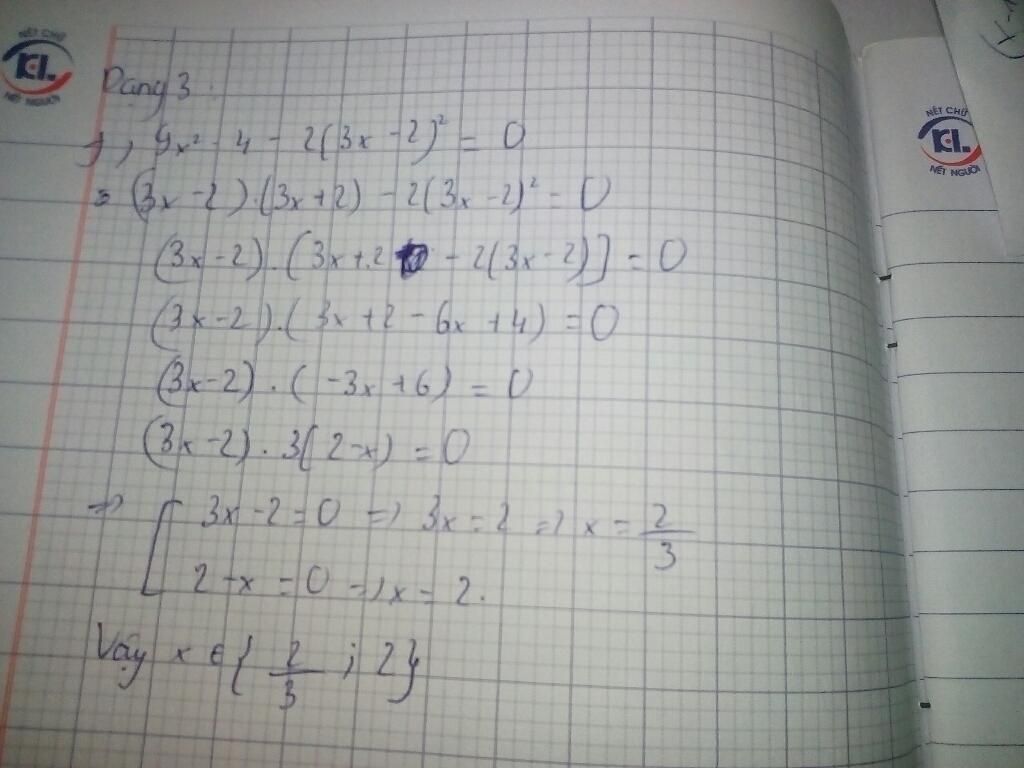 NÉT CHỮ
KL
NẾT NGƯỜI
Dạng 3:
1, 9x² - 4 - 2(3x - 2)² = 0
= (3x - 2).(3x + 2) - 2(3x - 2)² = 0
(3x - 2).(3x + 2 - 2(3x - 2)] = 0
(3x - 2).(3x + 2 - 6x + 4) = 0
(3x - 2).(-3x + 6) = 0
(3x - 2).3(2 - x) = 0
=> [ 3x - 2 = 0 => 3x = 2 => x = 2/3
2 - x = 0 => x = 2.
Vậy x ∈ { 2/3 ; 2}
NÉT CHỮ
KL
NẾT NGƯỜI